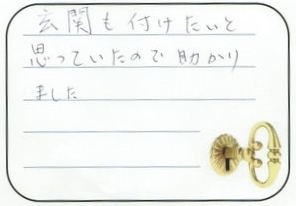 玄関も付けたいと
思っていたので助かり
ました